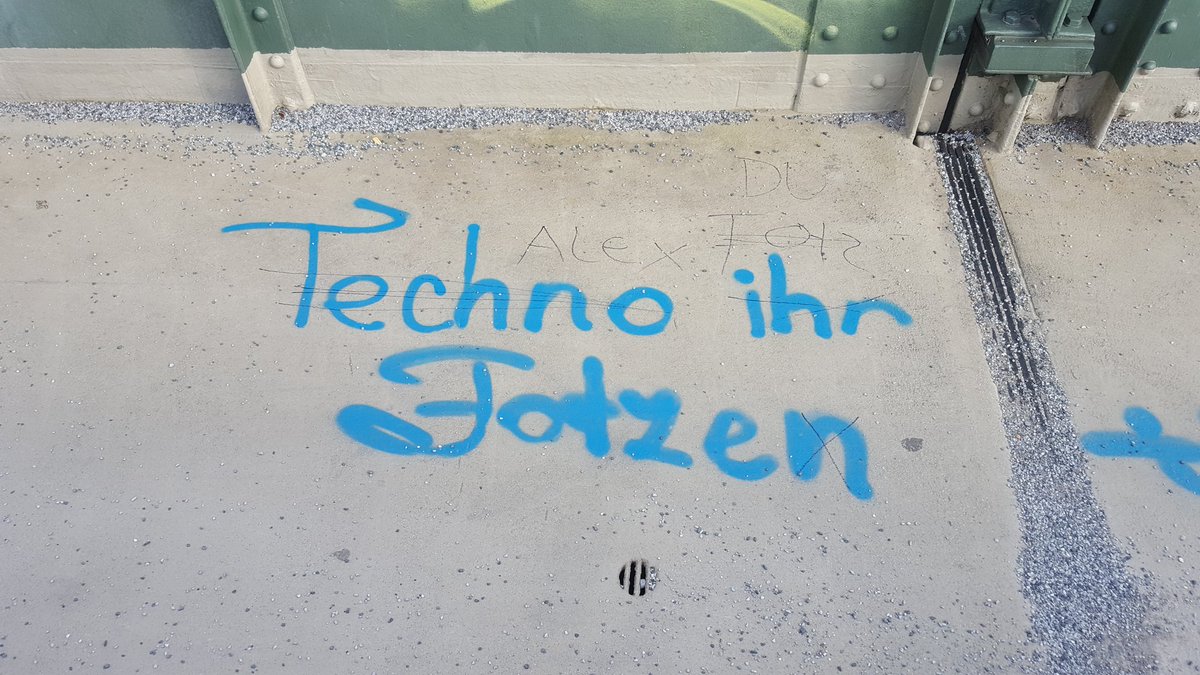 DU
ALEX FOTZ
Techno ihr
Fotzen